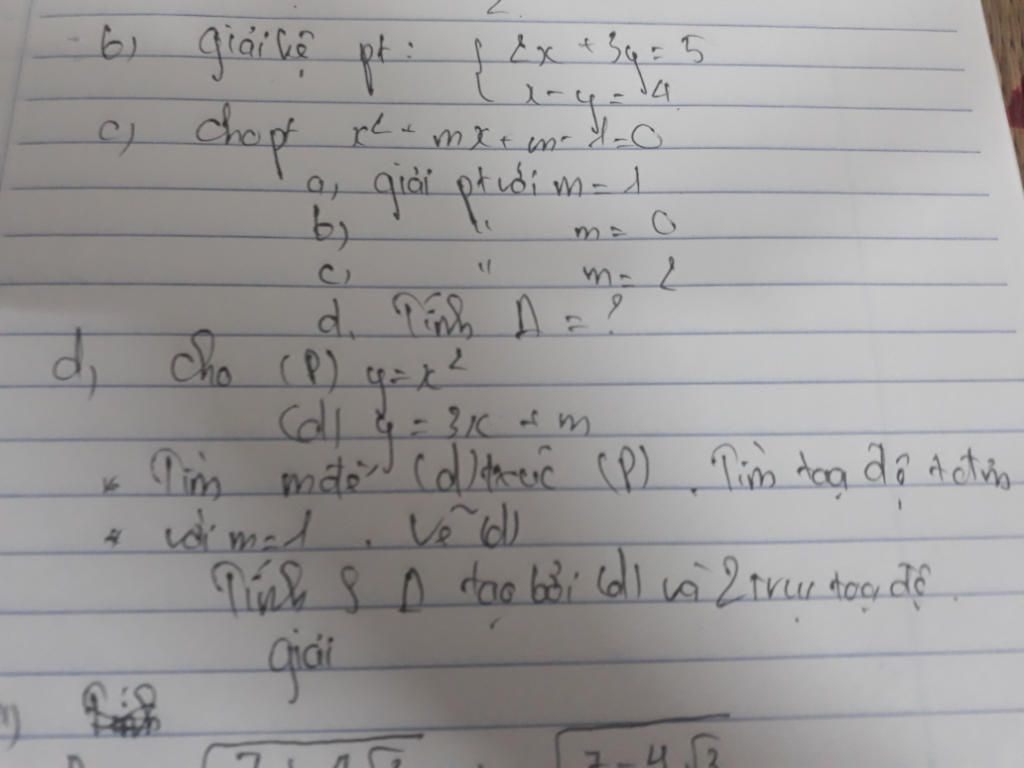 b, giải hệ pt: { 2x + 3y = 5
x - y = 4
c, Cho pt x² - mx + m - 1 = 0
a, giải pt với m = 1
b) " m = 0
c, " m = 2
d. Tính Δ = ?
d, Cho (P) y = x²
(d) y = 3x + m
* Tìm m để (d) tx víc (P). Tìm toạ độ tđiểm
* với m = 1. Vẽ (d)
Tính S Δ tạo bởi (d) và 2 trục toạ độ.
giải